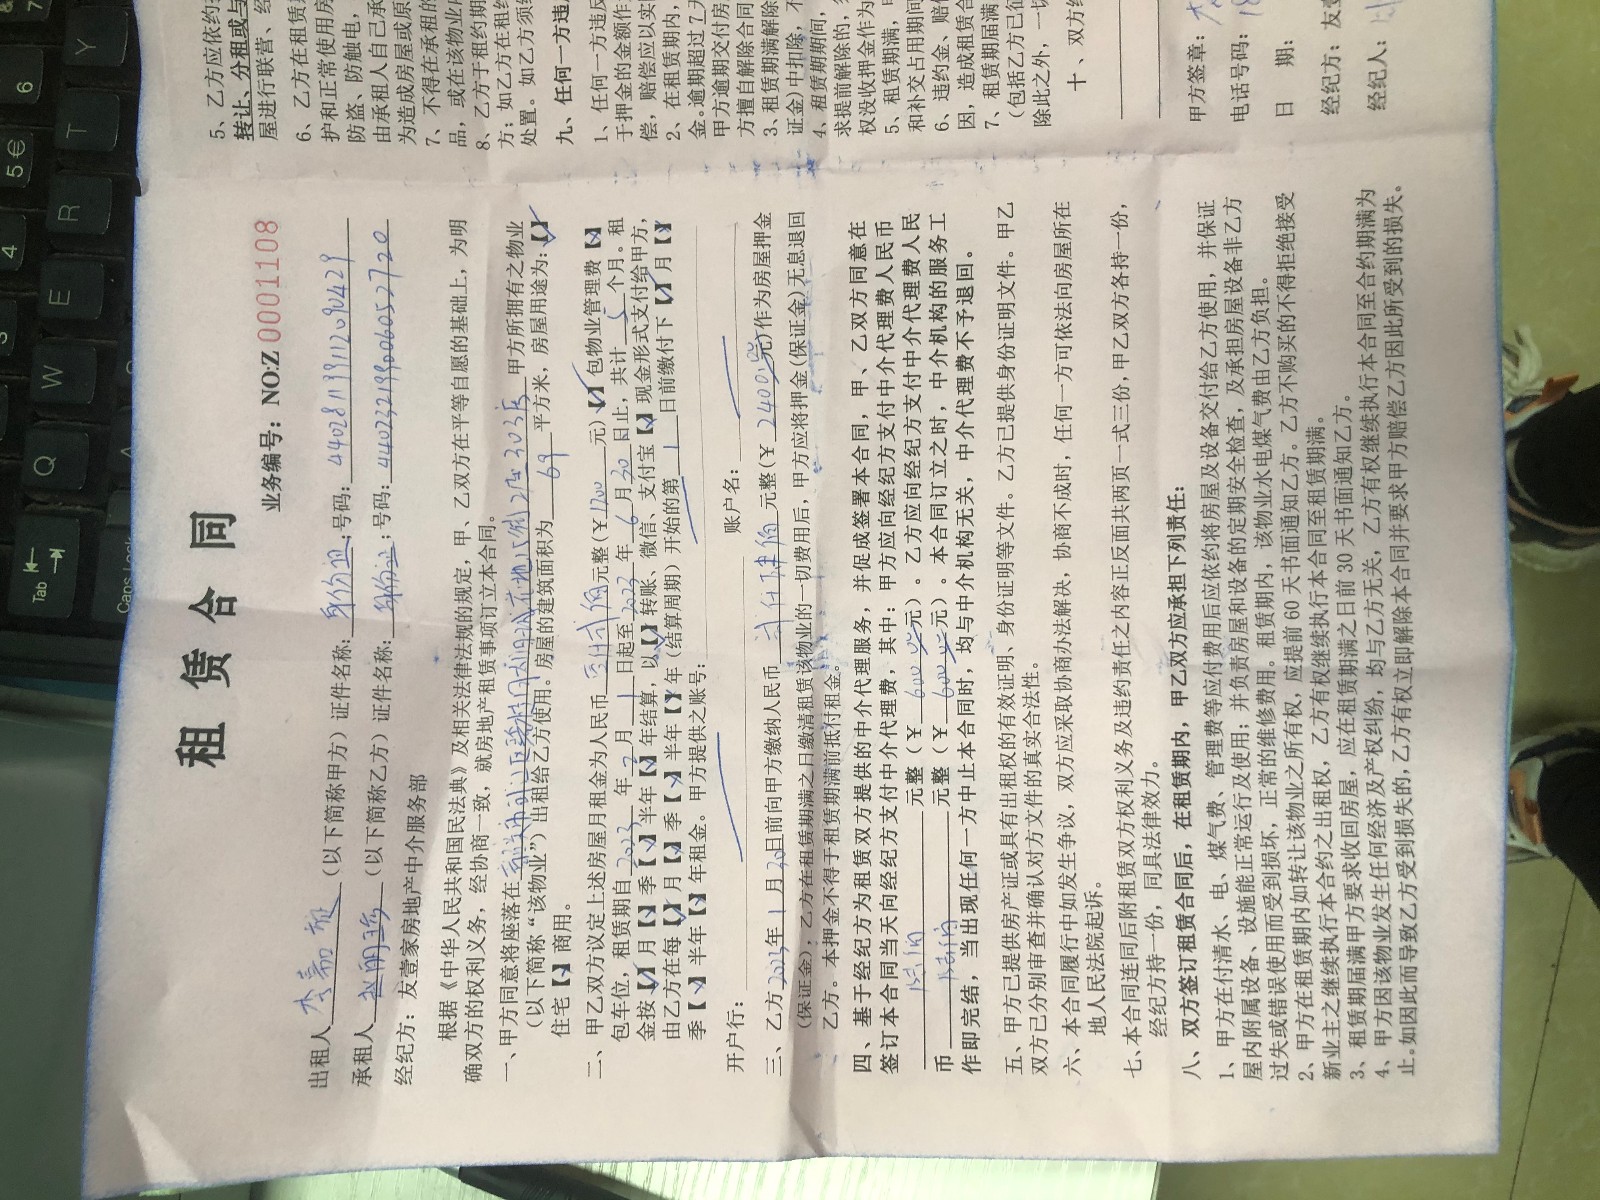 租赁合同
业务编号：NO:Z 0001108
出租人 李嘉 （以下简称甲方）证件名称：身份证；号码：
承租人 （以下简称乙方）证件名称：身份证；号码：
经纪方：友壹家房地产中介服务部
根据《中华人民共和国民法典》及相关法律法规的规定，甲、乙双方在平等自愿的基础上，为明
确双方的权利义务，经协商一致，就房地产租赁事项订立本合同。
一、甲方同意将座落在 303房 甲方所拥有之物业
（以下简称“该物业”）出租给乙方使用。房屋的建筑面积为 69 平方米，房屋用途为：【✓】
住宅【×】商用。
二、甲乙双方议定上述房屋月租金为人民币 壹仟贰佰 元整(￥1200 元)【✓】包物业管理费【×】
包车位，租赁期自 2023 年 2 月 1 日起至 2023 年 6 月 30 日止，共计 5 个月。租
金按【✓】月【×】季【×】半年【×】年结算，以【✓】转账、微信、支付宝【×】现金形式支付给甲方，
由乙方在每【✓】月【×】季【×】半年【×】年（结算周期）开始的第 1 日前缴付下【✓】月【×】
季【×】半年【×】年租金。甲方提供之账号：
开户行： 账户名：
三、乙方 2023 年 1 月 30 日前向甲方缴纳人民币 贰仟肆佰 元整(￥ 2400 元)作为房屋押金
(保证金)，乙方在租赁期满之日缴清租赁该物业的一切费用后，甲方应将押金(保证金)无息退回
乙方。本押金不得于租赁期满前抵付租金。
四、基于经纪方为租赁双方提供的中介代理服务，并促成签署本合同，甲、乙双方同意在
签订本合同当天向经纪方支付中介代理费，其中：甲方应向经纪方支付中介代理费人民币
陆佰 元整（￥ 600 元）。乙方应向经纪方支付中介代理费人民
币 陆佰 元整（￥ 600 元）。本合同订立之时，中介机构的服务工
作即完结，当出现任何一方中止本合同时，均与中介机构无关，中介代理费不予退回。
五、甲方已提供房产证或具有出租权的有效证明、身份证明等文件。乙方已提供身份证明文件。甲乙
双方已分别审查并确认对方文件的真实合法性。
六、本合同履行中如发生争议，双方应采取协商办法解决，协商不成时，任何一方可依法向房屋所在
地人民法院起诉。
七、本合同连同后附租赁双方权利义务及违约责任之内容正反面共两页一式三份，甲乙双方各持一份，
经纪方持一份，同具法律效力。
八、双方签订租赁合同后，在租赁期内，甲乙双方应承担下列责任：
1、甲方在付清水、电、煤气费、管理费等应付费用后应依约将房屋及设备交付给乙方使用，并保证
屋内附属设备、设施能正常运行及使用；并负责房屋和设备的定期安全检查，及承担房屋设备非乙方
过失或错误使用而受到损坏，正常的维修费用。租赁期内，该物业水电煤气费由乙方负担。
2、甲方在租赁期内如转让该物业之所有权，应提前 60 天书面通知乙方。乙方不购买的不得拒绝接受
新业主之继续执行本合约之出租权，乙方有权继续执行本合同至租赁期满。
3、租赁期届满甲方要求收回房屋，应在租赁期满之日前 30 天书面通知乙方。
4、甲方因该物业发生任何经济及产权纠纷，均与乙方无关，乙方有权继续执行本合同至合约期满为
止。如因此而导致乙方受到损失的，乙方有权立即解除本合同并要求甲方赔偿乙方因此所受到的损失。
5、乙方应依约
转让、分租或与
屋进行联营、经
6、乙方在租赁
护和正常使用房
防盗、防触电，
由承租人自己承
为造成房屋或原
7、不得在承租的
品，或在该物业
8、乙方于租约期
方；如乙方在租约
处置。如乙方须
九、任何一方违
1、任何一方违反
于押金的金额作
偿，赔偿应以实
2、在租赁期内，
金。逾期超过 7
甲方逾期交付房
方擅自解除合同
3、租赁期满解除
证金)中扣除，不
4、租赁期期间，
求提前解除的，
权没收押金作为
5、租赁期满，
和补交占用期间
6、违约金、赔偿
因，造成租赁合
7、租赁期届满
(包括乙方已
除此之外，一切
十、双方
甲方签章：
电话号码：
日 期：
经纪方：友壹
经纪人：
Tab
Caps Lock
Q
W
E
R
T
Y
A
4
5
€
6
7
&